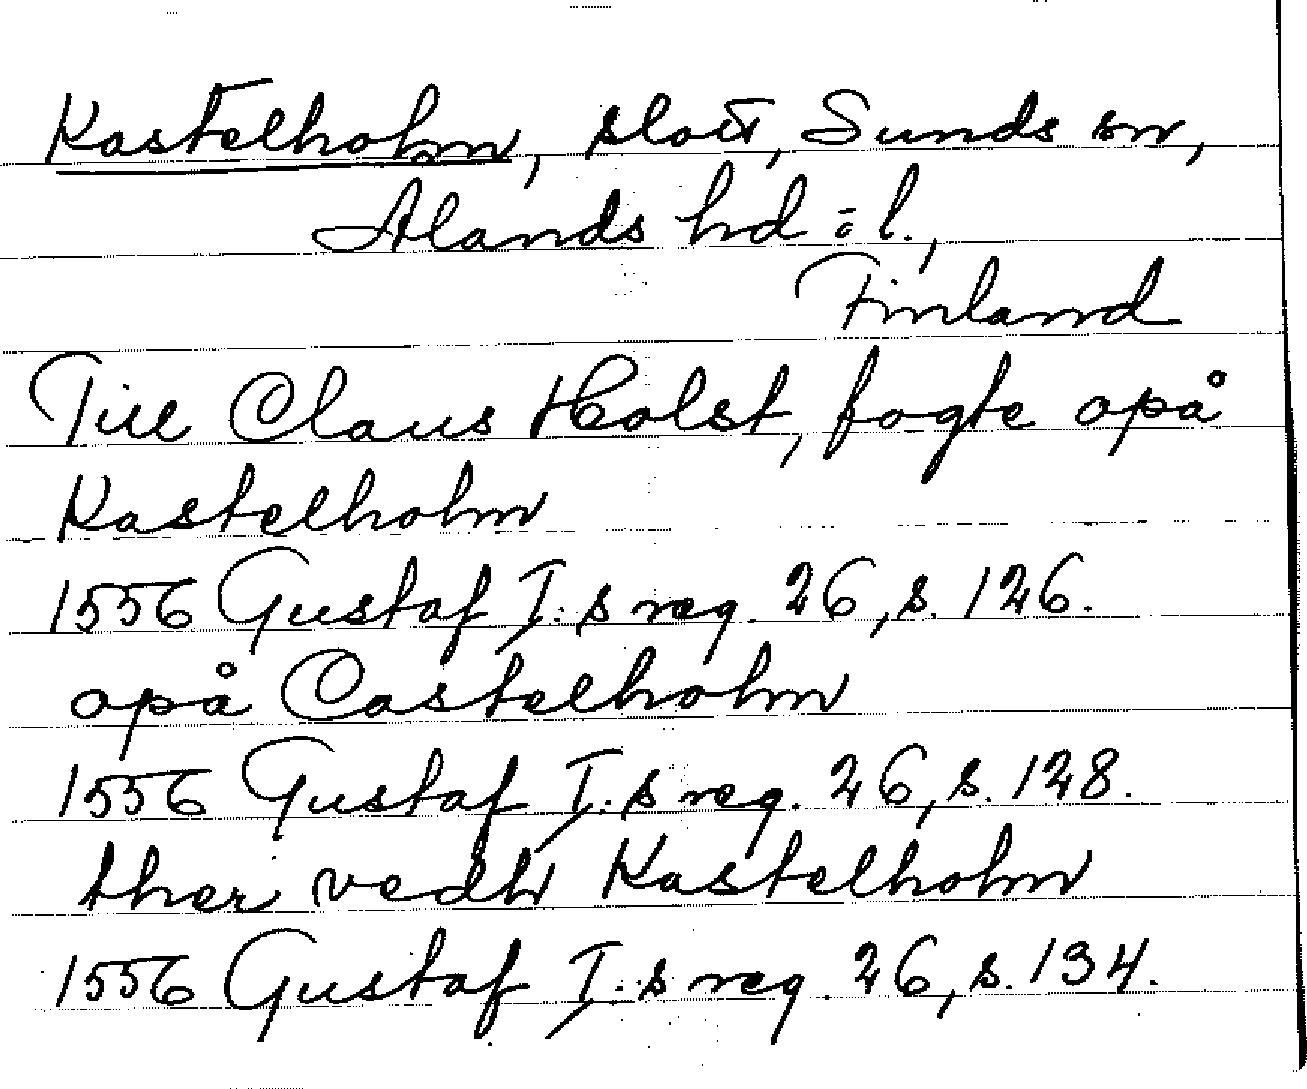 Kastelholm, slott, Sunds sn,
Ålands hd o l.,
Finland
Till Claus Holst, fogte opå
Kastelholm
1556 Gustaf I:s reg. 26, s. 126.
opå Castelholm
1556 Gustaf I:s reg. 26, s. 128.
ther vedh Kastelholm
1556 Gustaf I:s reg. 26, s. 134.